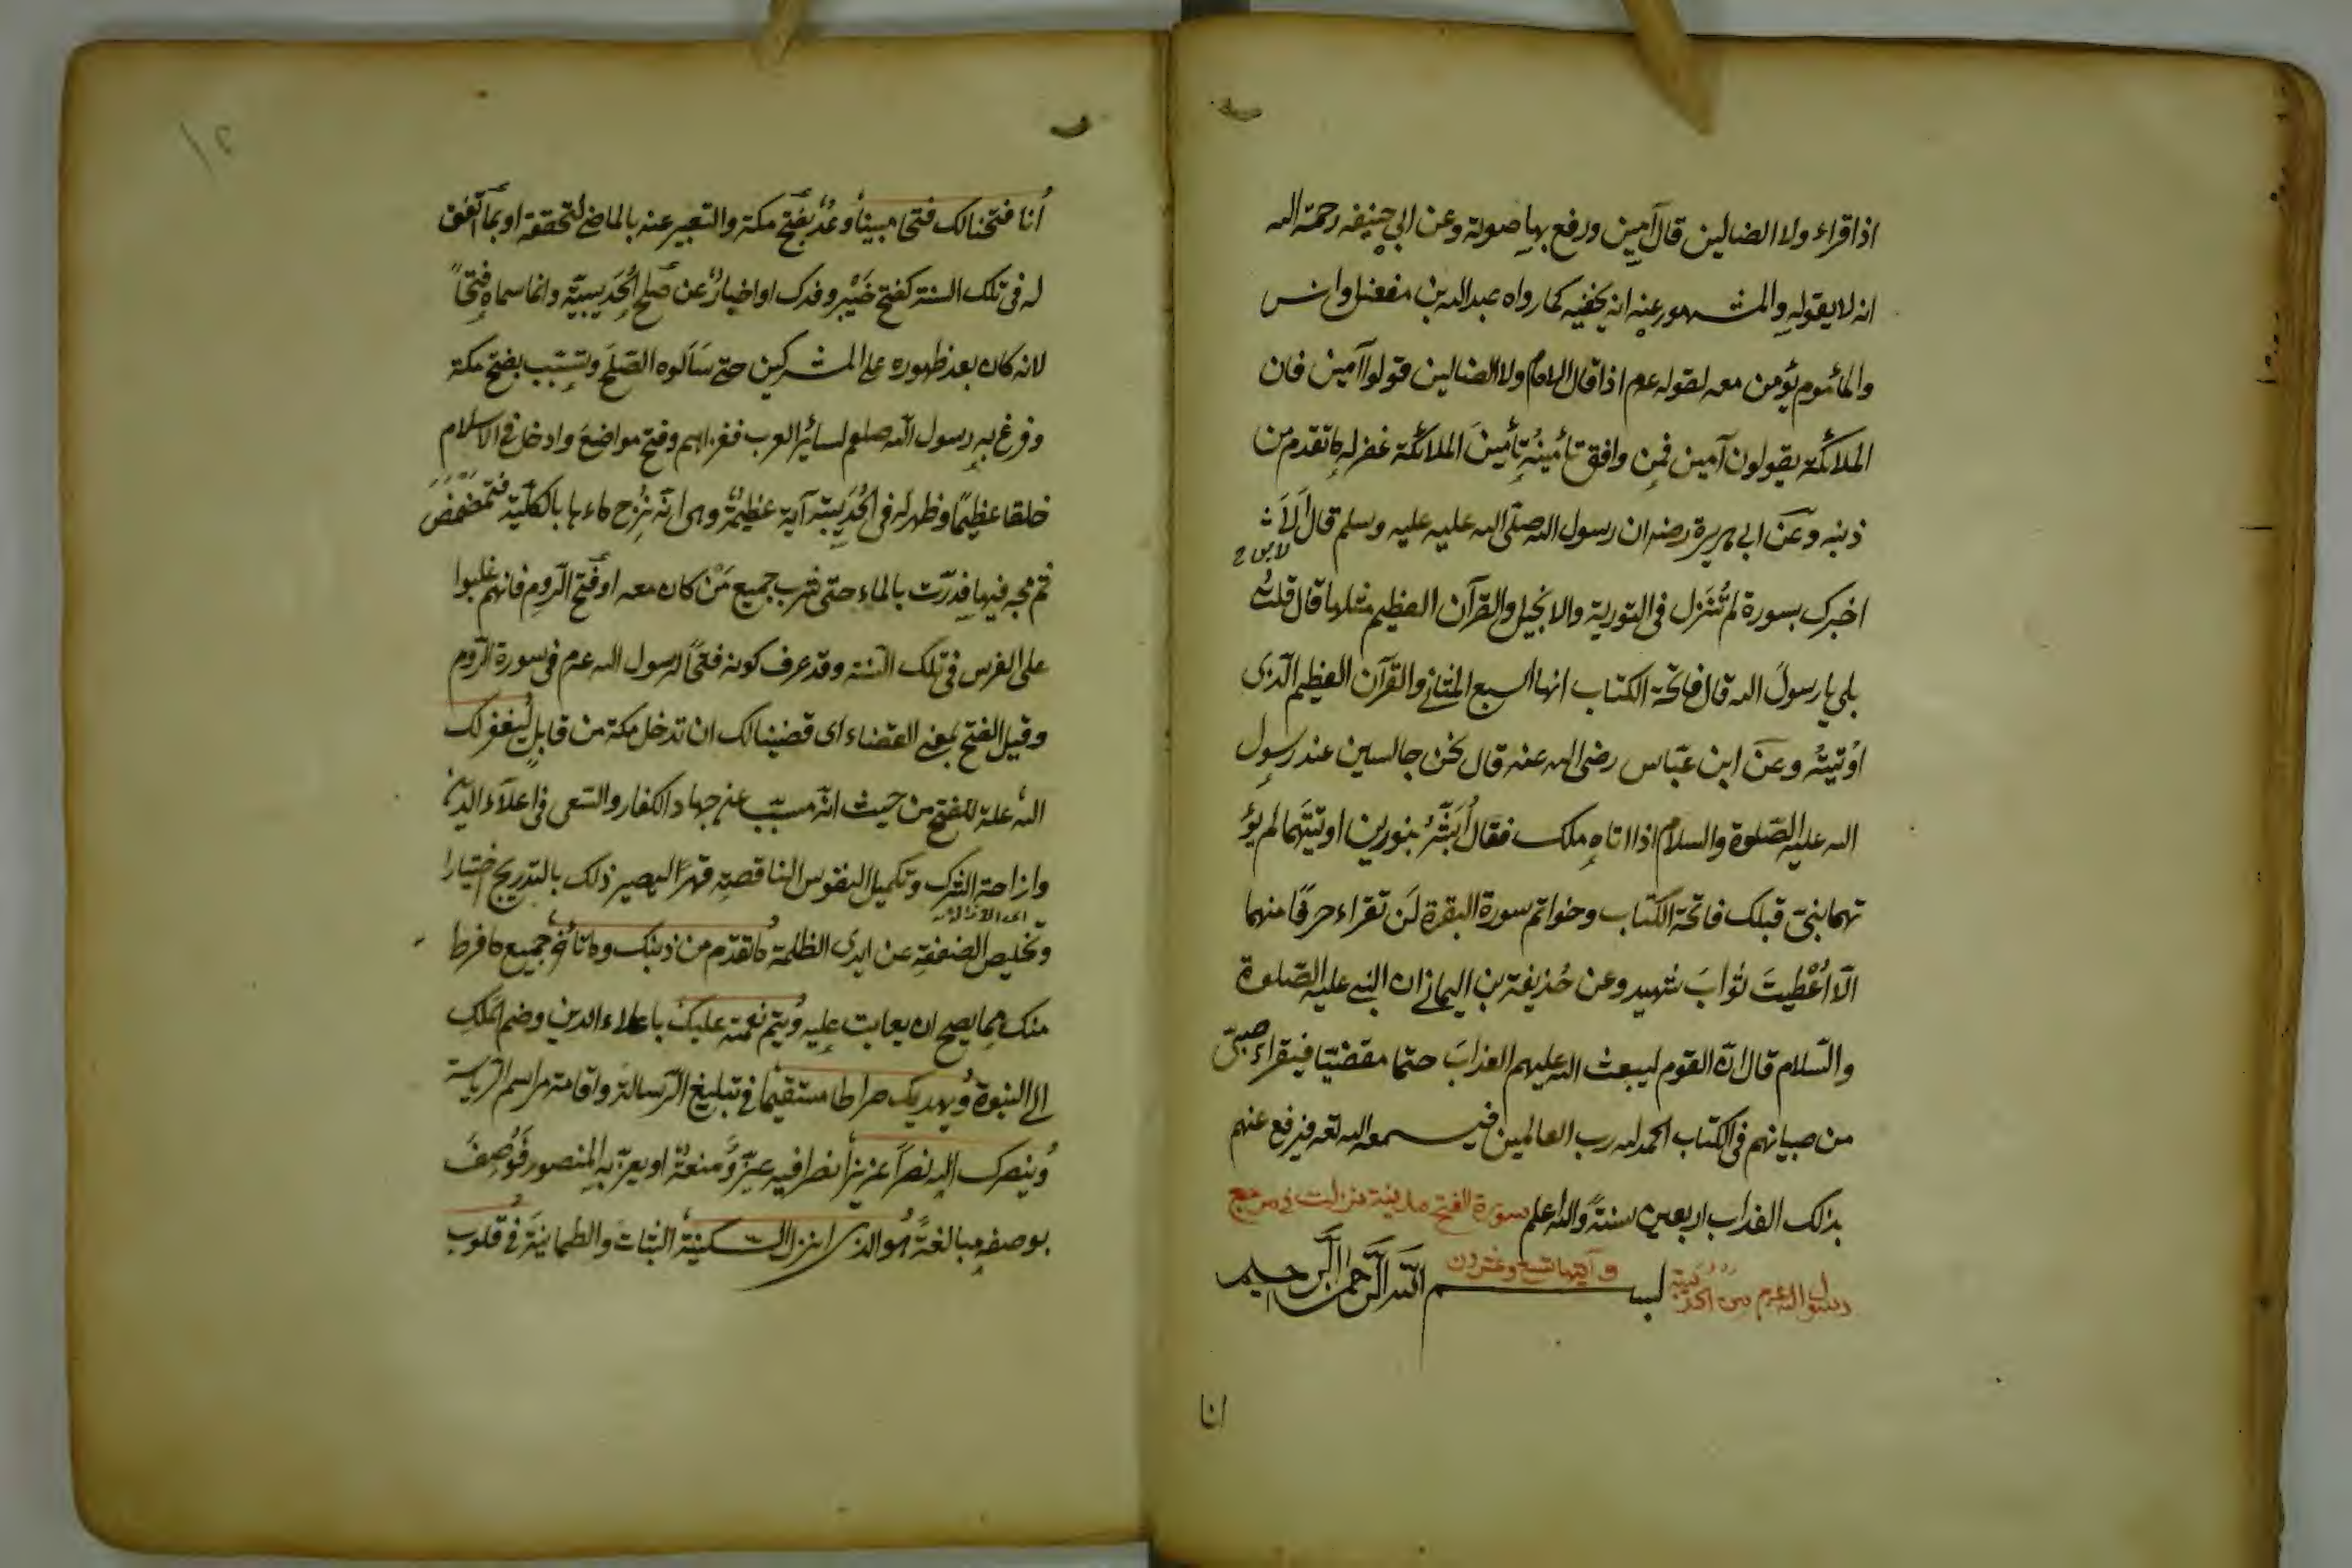 اذا قراء ولا الضالين قال آمين ورفع بها صوته وعن ابي حنيفه رحمة الله
انه لا يقوله والمشهور عنه انه يخفيه كما رواه عبدالله بن مغفل وانس
والمأموم يؤمن معه لقوله عم اذا قال الامام ولا الضالين قولوا آمين فان
الملائكة يقولون آمين فمن وافق تأمينه تأمين الملائكة غفر له ما تقدم من
ذنبه وعن ابي هريرة رضه ان رسول الله صلى الله عليه عليه وسلم قال ألا
لابي
اخبرك بسورة لم تنزل في التورية والانجيل والقرآن العظيم مثلها قال قلت
بلى يا رسول الله قال فاتحة الكتاب انها السبع المثاني والقرآن العظيم الذي
اوتيته وعن ابن عباس رضي الله عنه قال نحن جالسين عند رسول
الله عليه الصلوة والسلام اذا اتاه ملك فقال أبشر بنورين اوتيتهما لم يؤ
تهما نبي قبلك فاتحة الكتاب وخواتم سورة البقرة لن تقراء حرفا منهما
الا أعطيت ثواب شهيد وعن حذيفة بن اليماني ان النبي عليه الصلوة
والسلام قال ان القوم ليبعث الله عليهم العذاب حتما مقضيا فيقراء صبي
من صبيانهم في الكتاب الحمد لله رب العالمين فيسمعه الله تعه فيرفع عنهم
بذلك العذاب اربعين سنة والله اعلم سورة الفتح مدنية نزلت في مرجع
رسول الله عم من الحديبية وآيتها تسع وعشرون بسم الله الرحمن الرحيم
انا
انا فتحنا لك فتحا مبينا وعد بفتح مكة والتعبير عنه بالماضي لتحققه او بما اتفق
له في تلك السنة كفتح خيبر وفدك او اخبار عن صلح الحديبية وانما سماه فتحا
لانه كان بعد ظهوره على المشركين حتى سألوه الصلح وتسبب بفتح مكة
وفرغ به رسول الله صلعم لسائر العرب فغزاهم وفتح مواضع وادخل في الاسلام
خلقا عظيما وظهر له في الحديبية آية عظيمة وهى انه نزح ماءها بالكلية فتمضمض
ثم مجه فيها فدرت بالماء حتى شرب جميع من كان معه او فتح الروم فانهم غلبوا
على الفرس في تلك السنة وقد عرف كونه فتحا لرسول الله عم في سورة الروم
وقيل الفتح بمعنى القضاء اى قضينا لك ان تدخل مكة من قابل ليغفر لك
الله علة للفتح من حيث انه مسبب عن جهاد الكفار والسعى في اعلاء الدين
وازاحة الشرك وتكميل النفوس الناقصة قهرا ليصير ذلك بالتدريج اختيارا
وتخليص الضعفة عن ايدى الظلمة ما تقدم من ذنبك وما تأخر جميع ما فرط
منك مما يصح ان يعاتب عليه ويتم نعمته عليك باعلاء الدين وضم الملك
الى النبوة ويهديك صراطا مستقيما في تبليغ الرسالة واقامة مراسم الرياسة
وينصرك الله نصرا عزيزا نصرا فيه عز ومنعة او يعز به المنصور فوصف
بوصفه مبالغة هو الذى انزل السكينة الثبات والطمانينة في قلوب